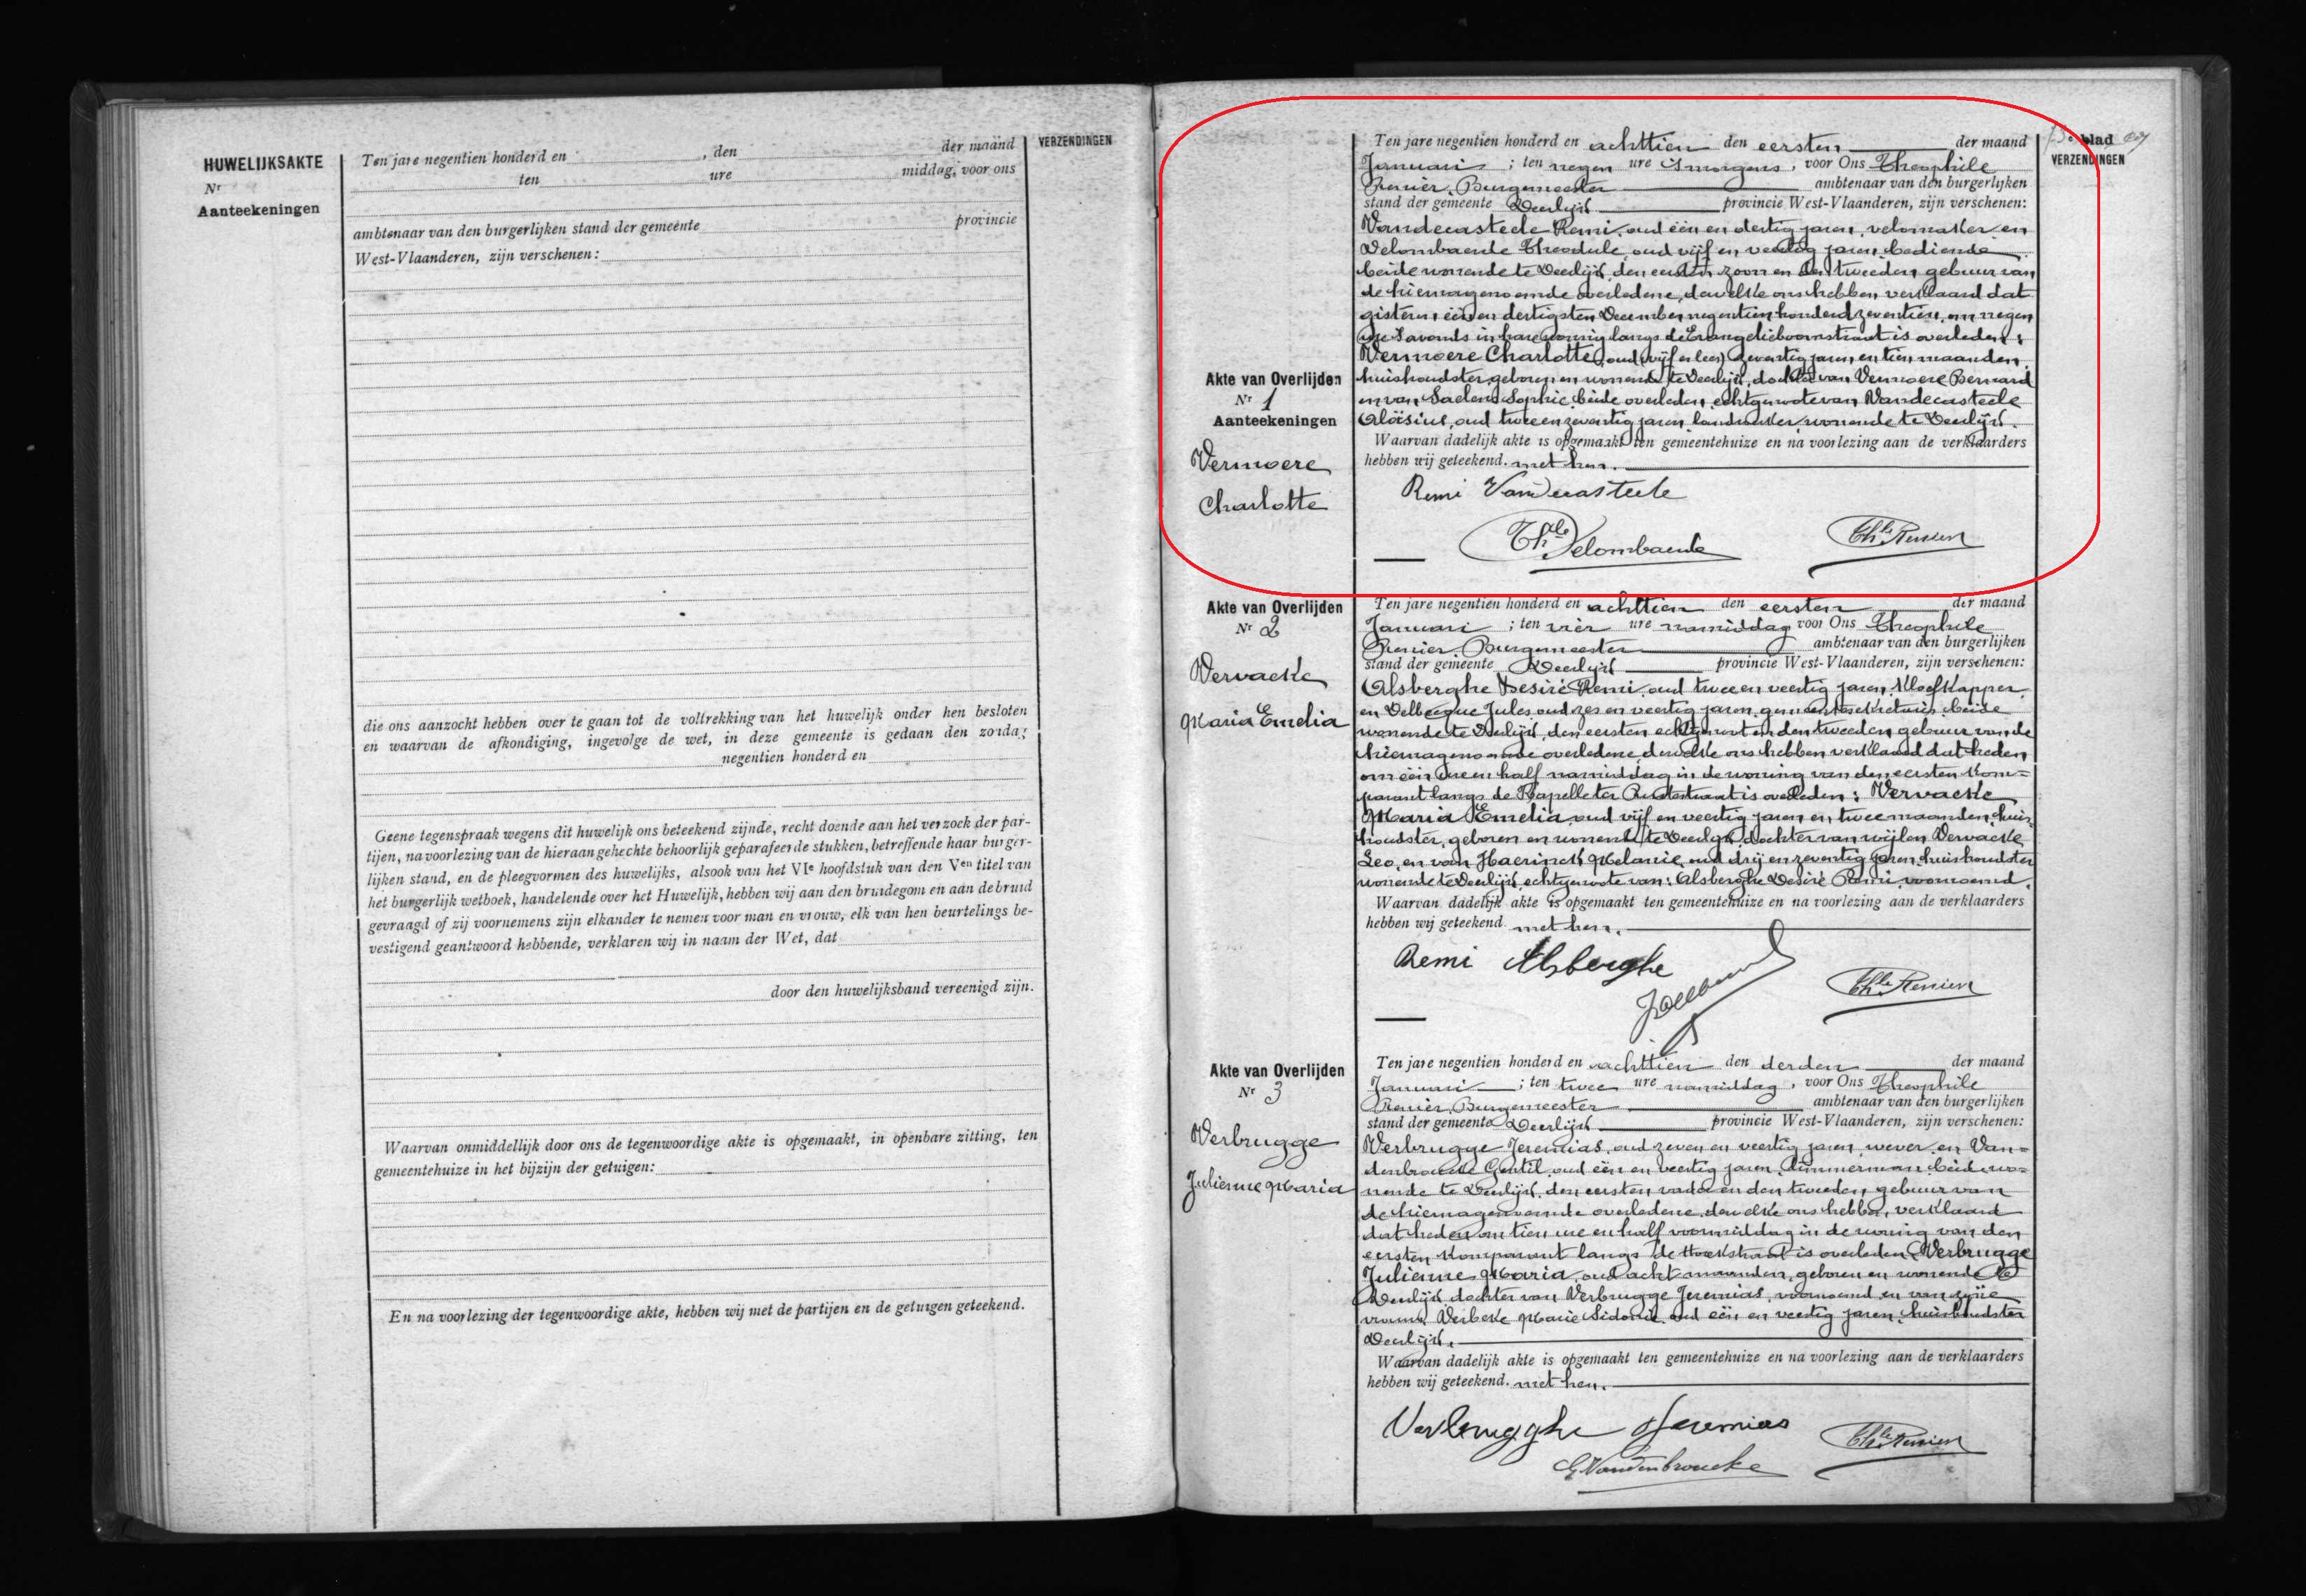 HUWELIJKSAKTE
Nr
Aanteekeningen
Ten jare negentien honderd en , den der maand
ten ure middag, voor ons
ambtenaar van den burgerlijken stand der gemeente provincie
West-Vlaanderen, zijn verschenen:
VERZENDINGEN
die ons aanzocht hebben over te gaan tot de voltrekking van het huwelijk onder hen besloten
en waarvan de afkondiging, ingevolge de wet, in deze gemeente is gedaan den zondag
negentien honderd en
Geene tegenspraak wegens dit huwelijk ons beteekend zijnde, recht doende aan het verzoek der par-
tijen, na voorlezing van de hieraan gehechte behoorlijk geparafeerde stukken, betreffende haar burger-
lijken stand, en de pleegvormen des huwelijks, alsook van het VIe hoofdstuk van den Ven titel van
het burgerlijk wetboek, handelende over het Huwelijk, hebben wij aan den bruidegom en aan de bruid
gevraagd of zij voornemens zijn elkander te nemen voor man en vrouw, elk van hen beurtelings be-
vestigend geantwoord hebbende, verklaren wij in naam der Wet, dat
door den huwelijksband vereenigd zijn.
Waarvan onmiddellijk door ons de tegenwoordige akte is opgemaakt, in openbare zitting, ten
gemeentehuize in het bijzijn der getuigen:
En na voorlezing der tegenwoordige akte, hebben wij met de partijen en de getuigen geteekend.
blad
VERZENDINGEN
Akte van Overlijden
Nr 1
Aanteekeningen
Vermoere
Charlotte
Ten jare negentien honderd en achttien den eersten der maand
Januari ; ten negen ure 's morgens, voor Ons Theophile
Renier, Burgemeester ambtenaar van den burgerlijken
stand der gemeente Deerlijk provincie West-Vlaanderen, zijn verschenen:
Vandecasteele Remi, oud één en dertig jaren, velomaker en
Delombaerde Theodule, oud vijf en veertig jaren, bediende
beide wonende te Deerlijk, den eersten zoon en den tweeden gebuur van
de hiernagenoemde overledene, dewelke ons hebben verklaard dat
gisteren één en dertigsten December negentien honderd zeventien, om negen
ure 's avonds in hare woning langs de Evangelieboomstraat is overleden:
Vermoere Charlotte, oud vijf en zeventig jaren en tien maanden,
huishoudster, geboren en wonende te Deerlijk, dochter van Vermoere Bernard
en van Saelens Sophie, beide overleden, echtgenoote van Vandecasteele
Aloïsius, oud twee en zeventig jaren, landwerker, wonende te Deerlijk.
Waarvan dadelijk akte is opgemaakt ten gemeentehuize en na voorlezing aan de verklaarders
hebben wij geteekend. met hen.
Remi Vandecasteele
Thle Delombaerde
Thle Renier
Akte van Overlijden
Nr 2
Vervacke
Maria Emelia
Ten jare negentien honderd en achttien den eersten der maand
Januari ; ten vier ure namiddag voor Ons Theophile
Renier, Burgemeester ambtenaar van den burgerlijken
stand der gemeente Deerlijk provincie West-Vlaanderen, zijn verschenen:
Alsberghe Desiré Remi, oud twee en veertig jaren, kloefkapper
en Delbecque Jules, oud zes en veertig jaren, gemeentesekretaris, beide
wonende te Deerlijk, den eersten echtgenoot en den tweeden gebuur van de
hiernagenoemde overledene, dewelke ons hebben verklaard dat heden
om één ure en half namiddag in de woning van den eersten kom=
parant langs de Kapelle ter Ruststraat is overleden: Vervacke
Maria Emelia, oud vijf en veertig jaren en twee maanden, huis-
houdster, geboren en wonende te Deerlijk, dochter van wijlen Vervacke
Leo, en van Haerinck Melanie, oud drij en zeventig jaren, huishoudster
wonende te Deerlijk, echtgenoote van: Alsberghe Desiré Remi, voornoemd.
Waarvan dadelijk akte is opgemaakt ten gemeentehuize en na voorlezing aan de verklaarders
hebben wij geteekend. met hen.
Remi Alsberghe
Thle Renier
Akte van Overlijden
Nr 3
Verbrugge
Julienne Maria
Ten jare negentien honderd en achttien den derden der maand
Januari ; ten twee ure namiddag, voor Ons Theophile
Renier, Burgemeester ambtenaar van den burgerlijken
stand der gemeente Deerlijk provincie West-Vlaanderen, zijn verschenen:
Verbrugge Jeremias, oud zeven en veertig jaren, wever, en Van=
denbroucke Gentil, oud één en veertig jaren, timmerman, beide wo=
nende te Deerlijk, den eersten vader en den tweeden gebuur van
de hiernagenoemde overledene, dewelke ons hebben verklaard
dat heden om tien ure en half voormiddag in de woning van den
eersten komparant langs de Hoekstraat is overleden: Verbrugge
Julienne Maria, oud acht maanden, geboren en wonende te
Deerlijk, dochter van Verbrugge Jeremias, voornoemd en van zijne
vrouw Verbeke Marie Sidonie, oud één en veertig jaren, huishoudster
Deerlijk.
Waarvan dadelijk akte is opgemaakt ten gemeentehuize en na voorlezing aan de verklaarders
hebben wij geteekend. met hen.
Verbrugghe Jeremias
Thle Renier
G Vandenbroucke